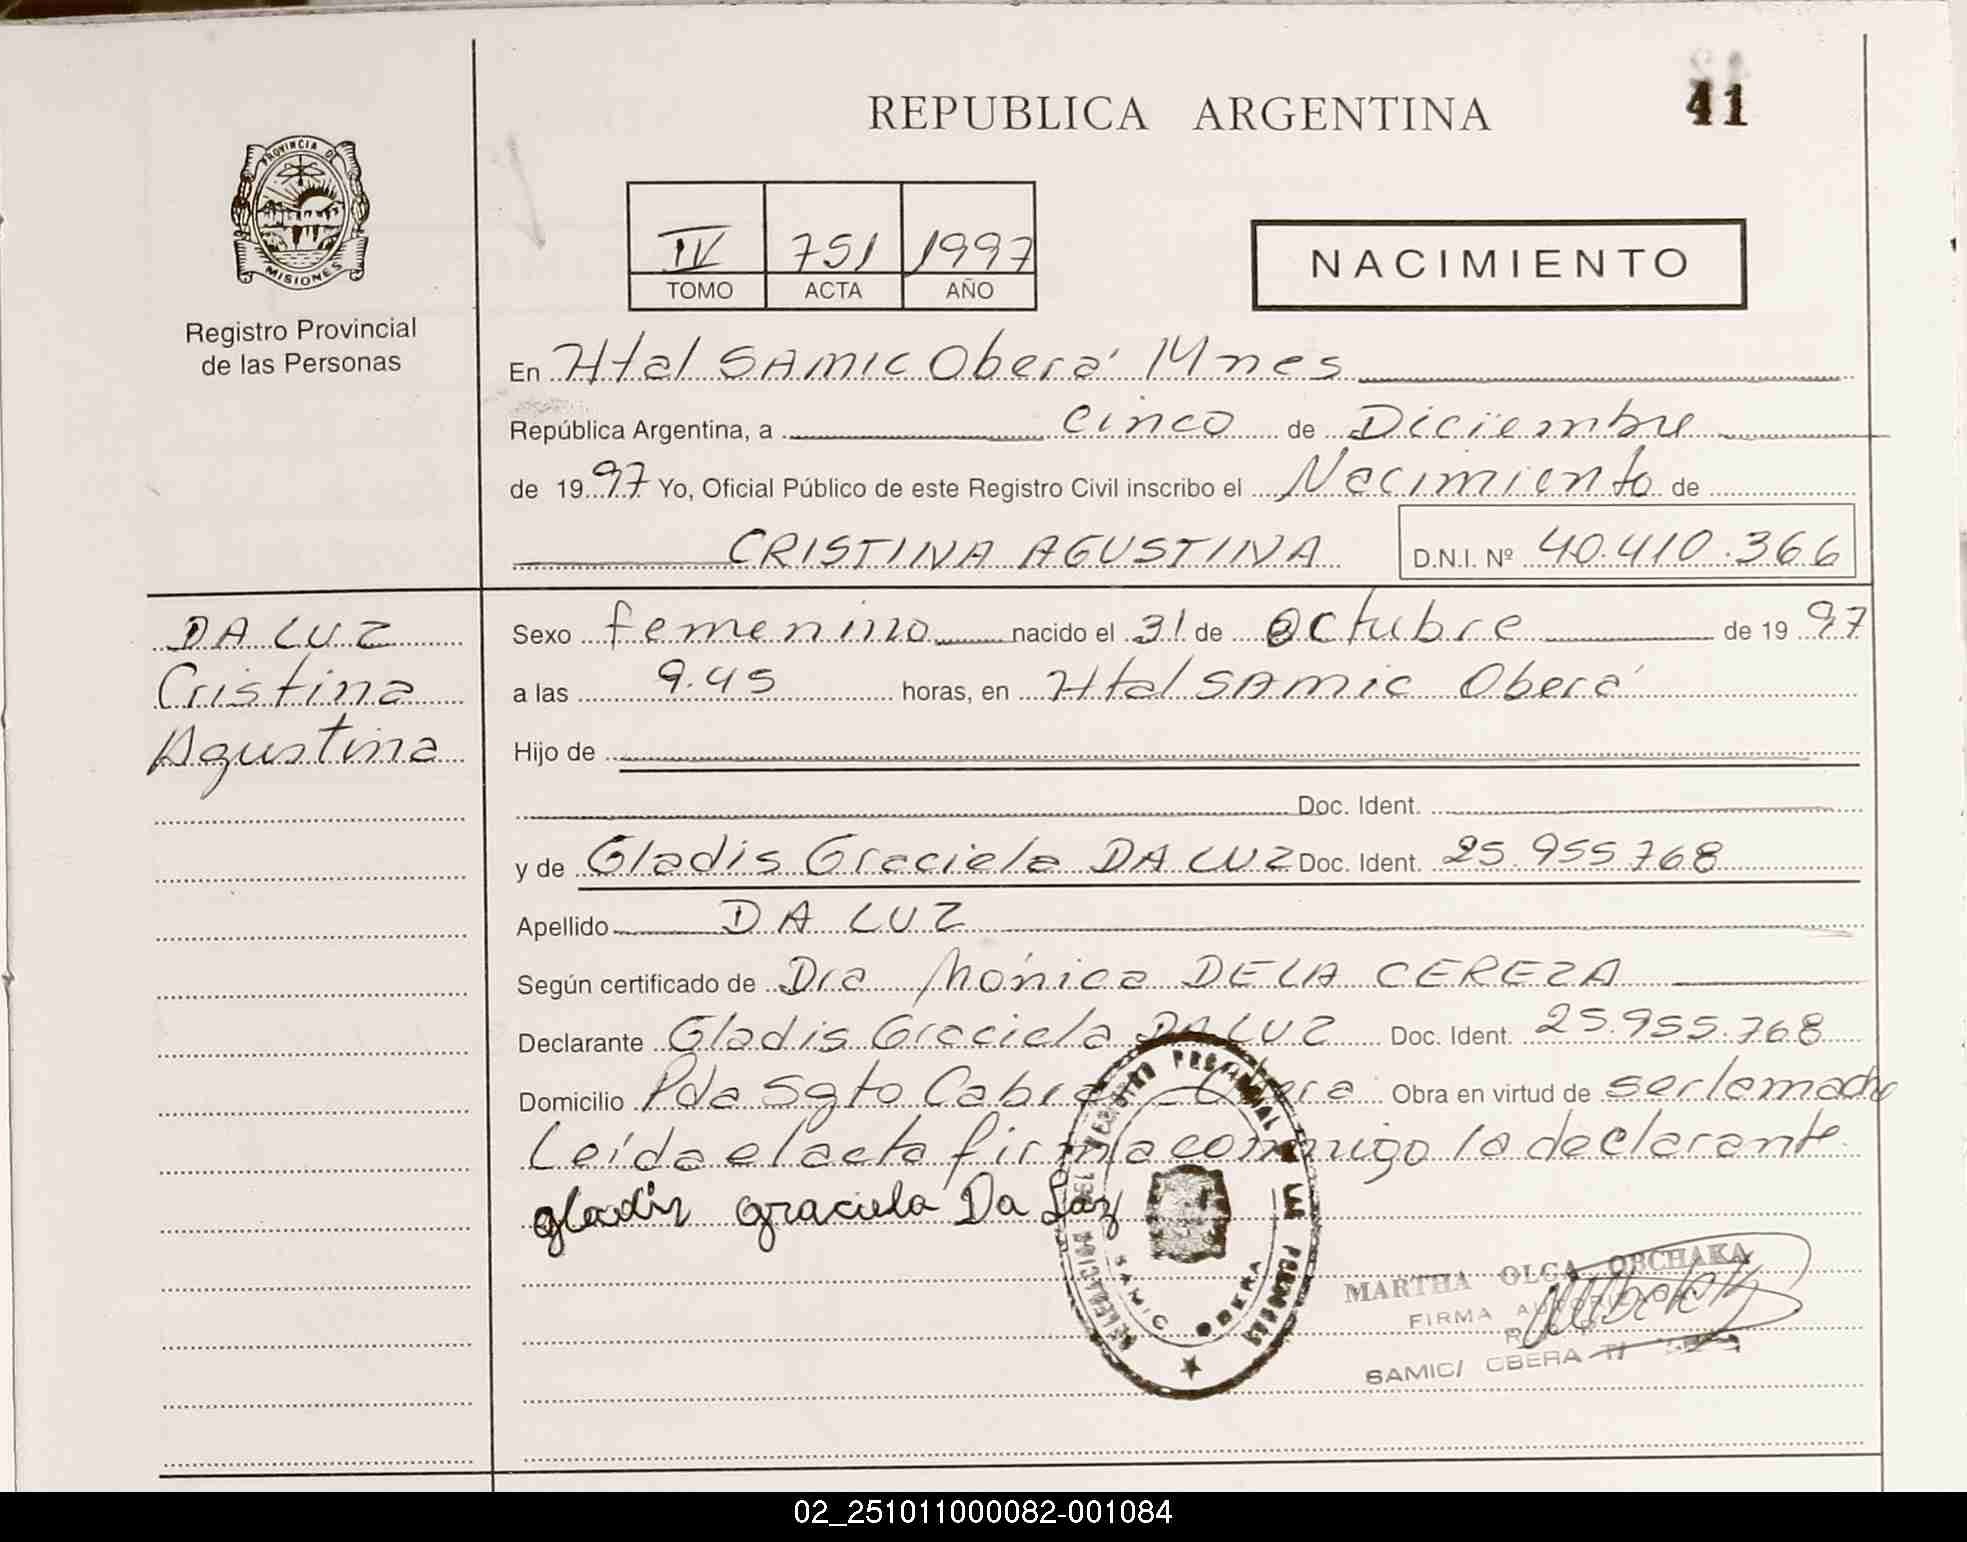 41
REPUBLICA ARGENTINA
PROVINCIA DE
MISIONES
Registro Provincial
de las Personas
IV 751 1997
TOMO ACTA AÑO
NACIMIENTO
En Htal SAMIC Oberá Mnes
República Argentina, a cinco de Diciembre
de 1997 Yo, Oficial Público de este Registro Civil inscribo el Nacimiento de
CRISTINA AGUSTINA D.N.I. Nº 40.410.366
DA LUZ
Cristina
Agustina
Sexo femenino nacido el 31 de octubre de 1997
a las 9.45 horas, en Htal SAMIC Oberá
Hijo de
Doc. Ident.
y de Gladis Graciela DA LUZ Doc. Ident. 25.955.768
Apellido DA LUZ
Según certificado de Dra Mónica DE LA CEREZA
Declarante Gladis Graciela DA LUZ Doc. Ident. 25.955.768
Domicilio Pda Sgto Cabral - Obera Obra en virtud de ser la madre
Leída el acta firma conmigo la declarante
gladis graciela Da Luz
SAMIC OBERA
MARTHA OLGA OBCHAKA
FIRMA
SAMIC/ OBERA
02_251011000082-001084